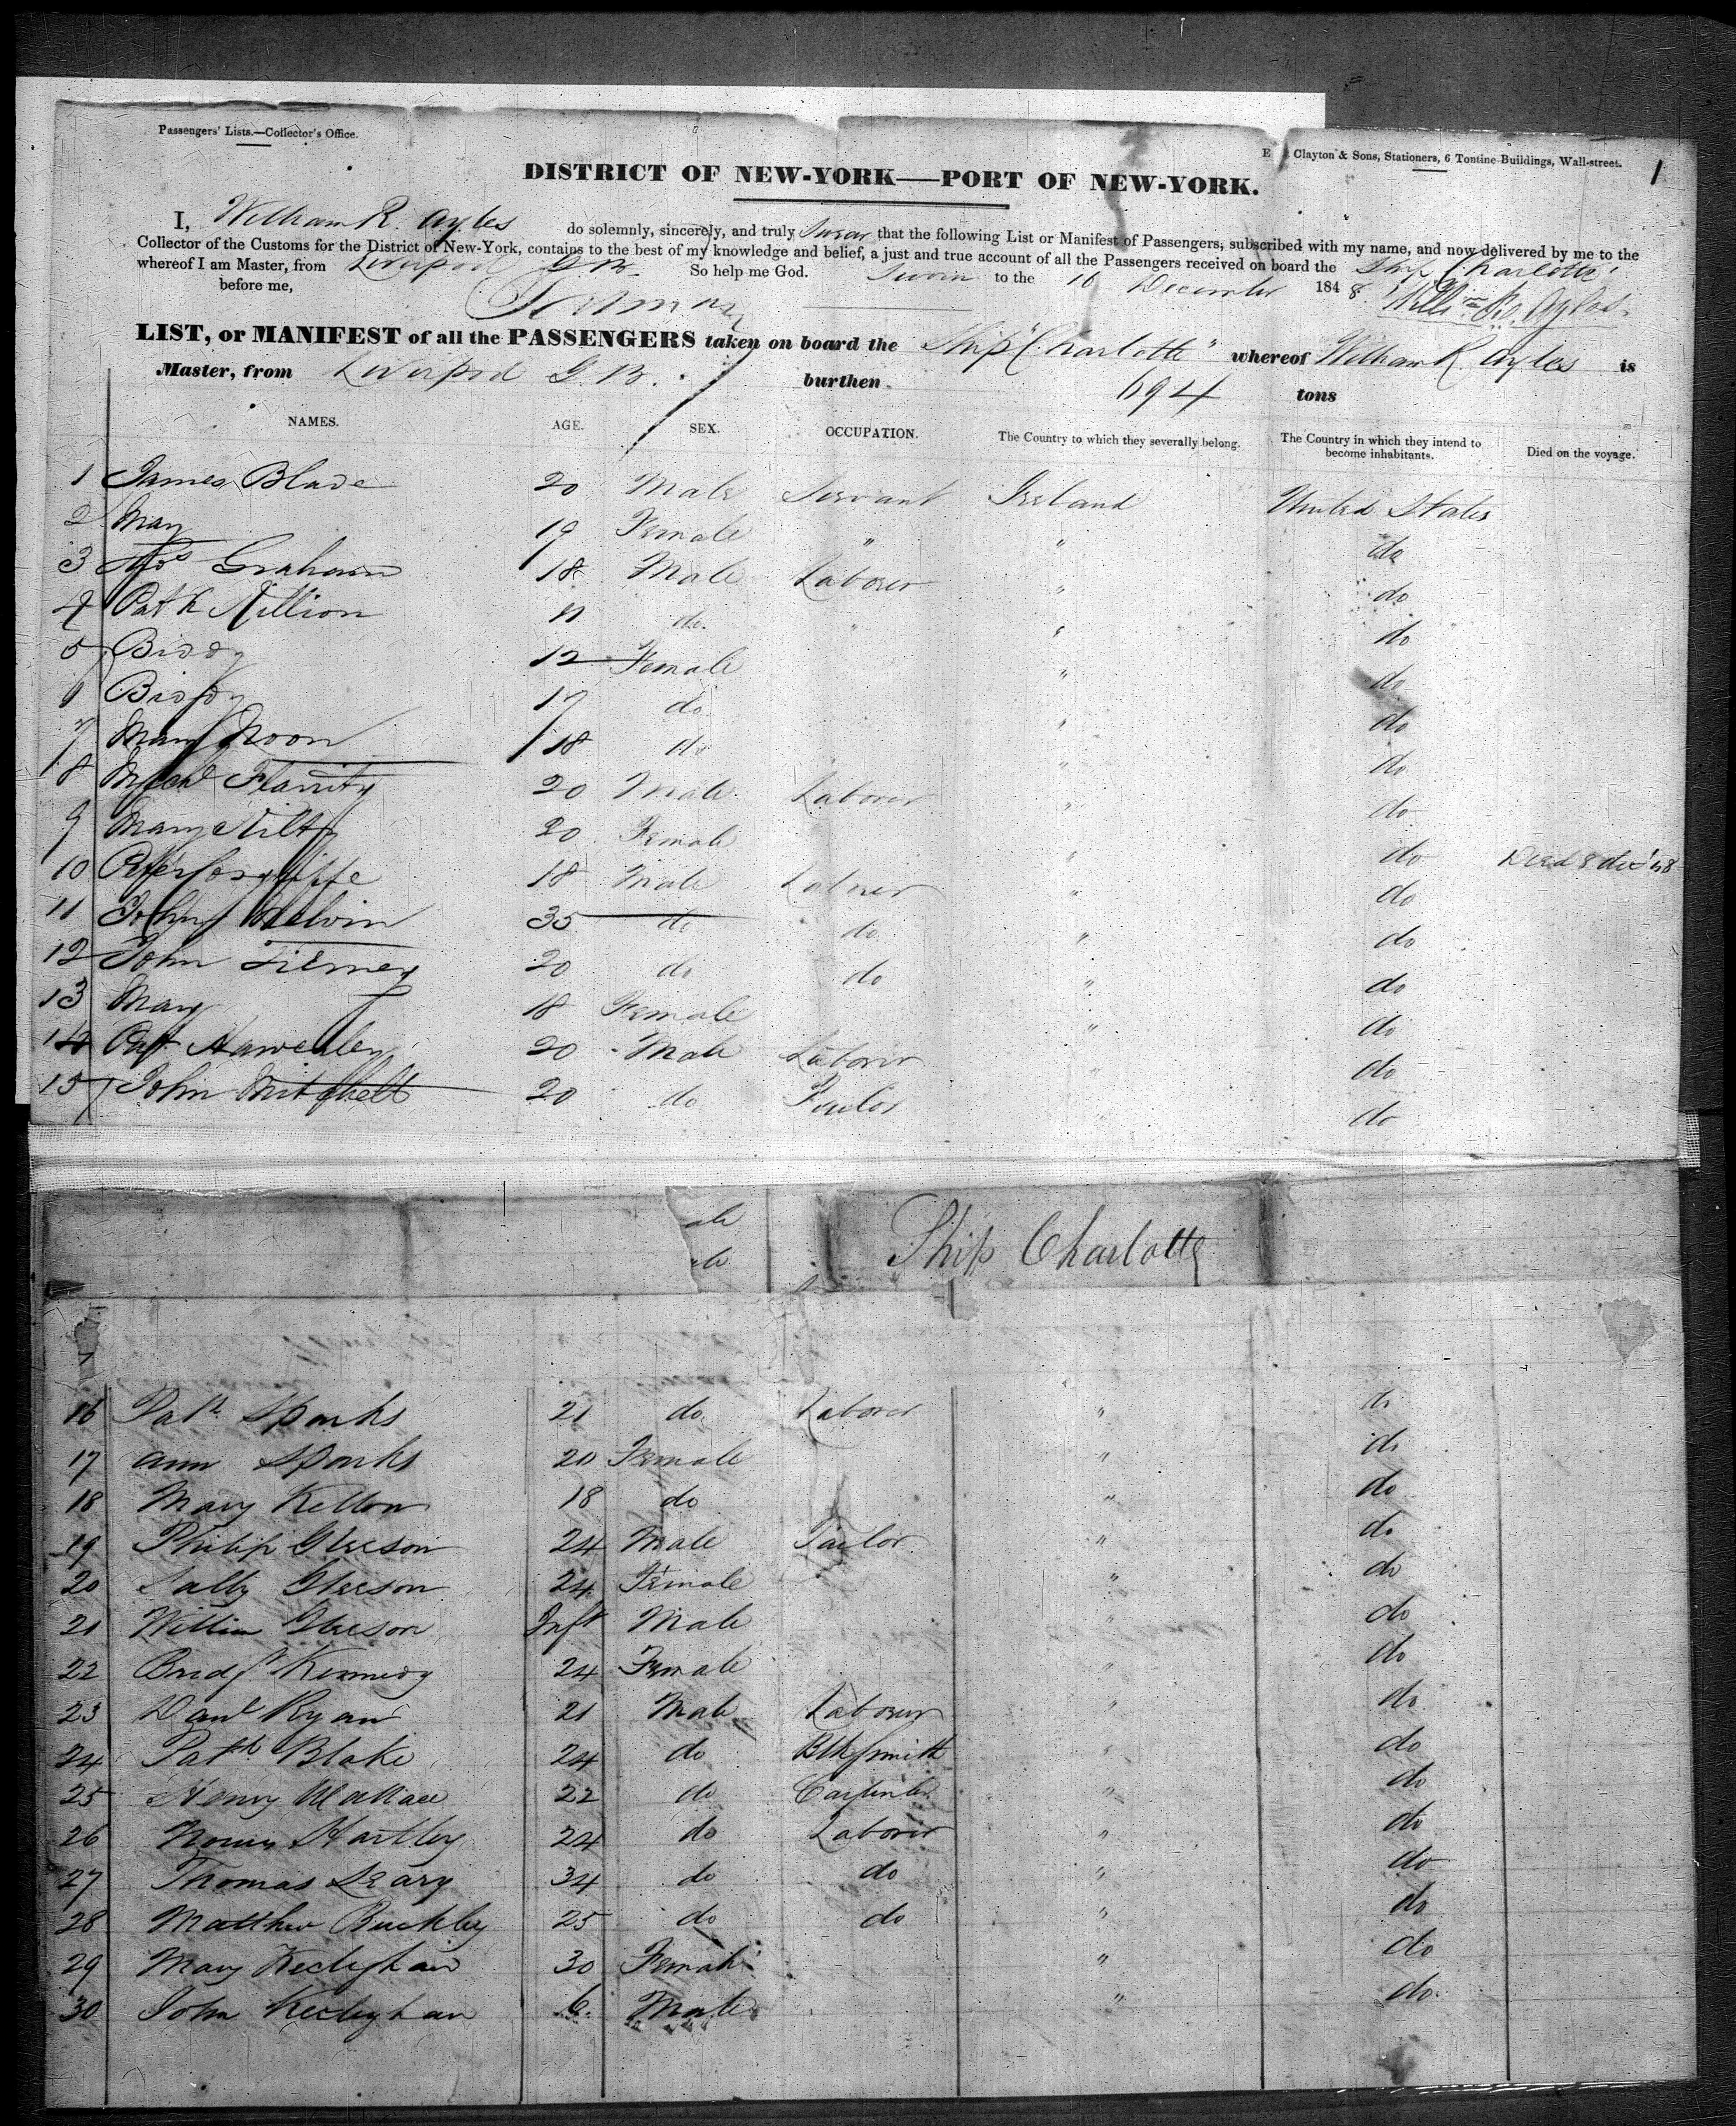 Passengers' Lists.—Collector's Office.
Clayton & Sons, Stationers, 6 Tontine-Buildings, Wall-street.
1
DISTRICT OF NEW-YORK—PORT OF NEW-YORK.
I, William R. Ayles do solemnly, sincerely, and truly Swear that the following List or Manifest of Passengers, subscribed with my name, and now delivered by me to the
Collector of the Customs for the District of New-York, contains to the best of my knowledge and belief, a just and true account of all the Passengers received on board the Ship Charlotte
whereof I am Master, from Liverpool G.B. So help me God. Sworn to the 16 December 1848
before me, Willm R. Ayles
LIST, or MANIFEST of all the PASSENGERS taken on board the Ship "Charlotte" whereof William R. Ayles is
Master, from Liverpool G.B. burthen 694 tons
NAMES. AGE. SEX. OCCUPATION. The Country to which they severally belong. The Country in which they intend to become inhabitants. Died on the voyage.
1 James Blade 20 Male Servant Ireland United States
2 Mary 19 Female " " do
3 Thos Graham 18 Male Laborer " do
4 Patk Nillion 11 do " " do
5 Biddy 12 Female " do
6 Biddy 17 do " do
7 Mary Noon 18 do " do
8 Michl Flanity 20 Male Laborer " do
9 Mary Nilty 20 Female " do Died 8 Dec '48
10 Peter 18 Male Laborer " do
11 John Melvin 35 do do " do
12 John Tierney 20 do do " do
13 Mary 18 Female " do
14 Pat 20 Male Laborer " do
15 John Mitchell 20 do Tailor " do
ale
ale
Ship Charlotte
16 Patk Sparks 21 do Laborer " do
17 Ann Sparks 20 Female " do
18 Mary Kellon 18 do " do
19 Philip Gleeson 24 Male Tailor " do
20 Sally Gleeson 24 Female " do
21 William Gleeson Inft Male " do
22 Bridgt Kennedy 24 Female " do
23 Danl Ryan 21 Male Laborer " do
24 Patk Blake 24 do Blksmith " do
25 Henry Wallace 22 do Carpenter " do
26 Hartley 24 do Laborer " do
27 Thomas Leary 34 do do " do
28 Matthew Buckley 25 do do " do
29 Mary Keeleghan 30 Female " do
30 John Keeleghan 6 Male " do